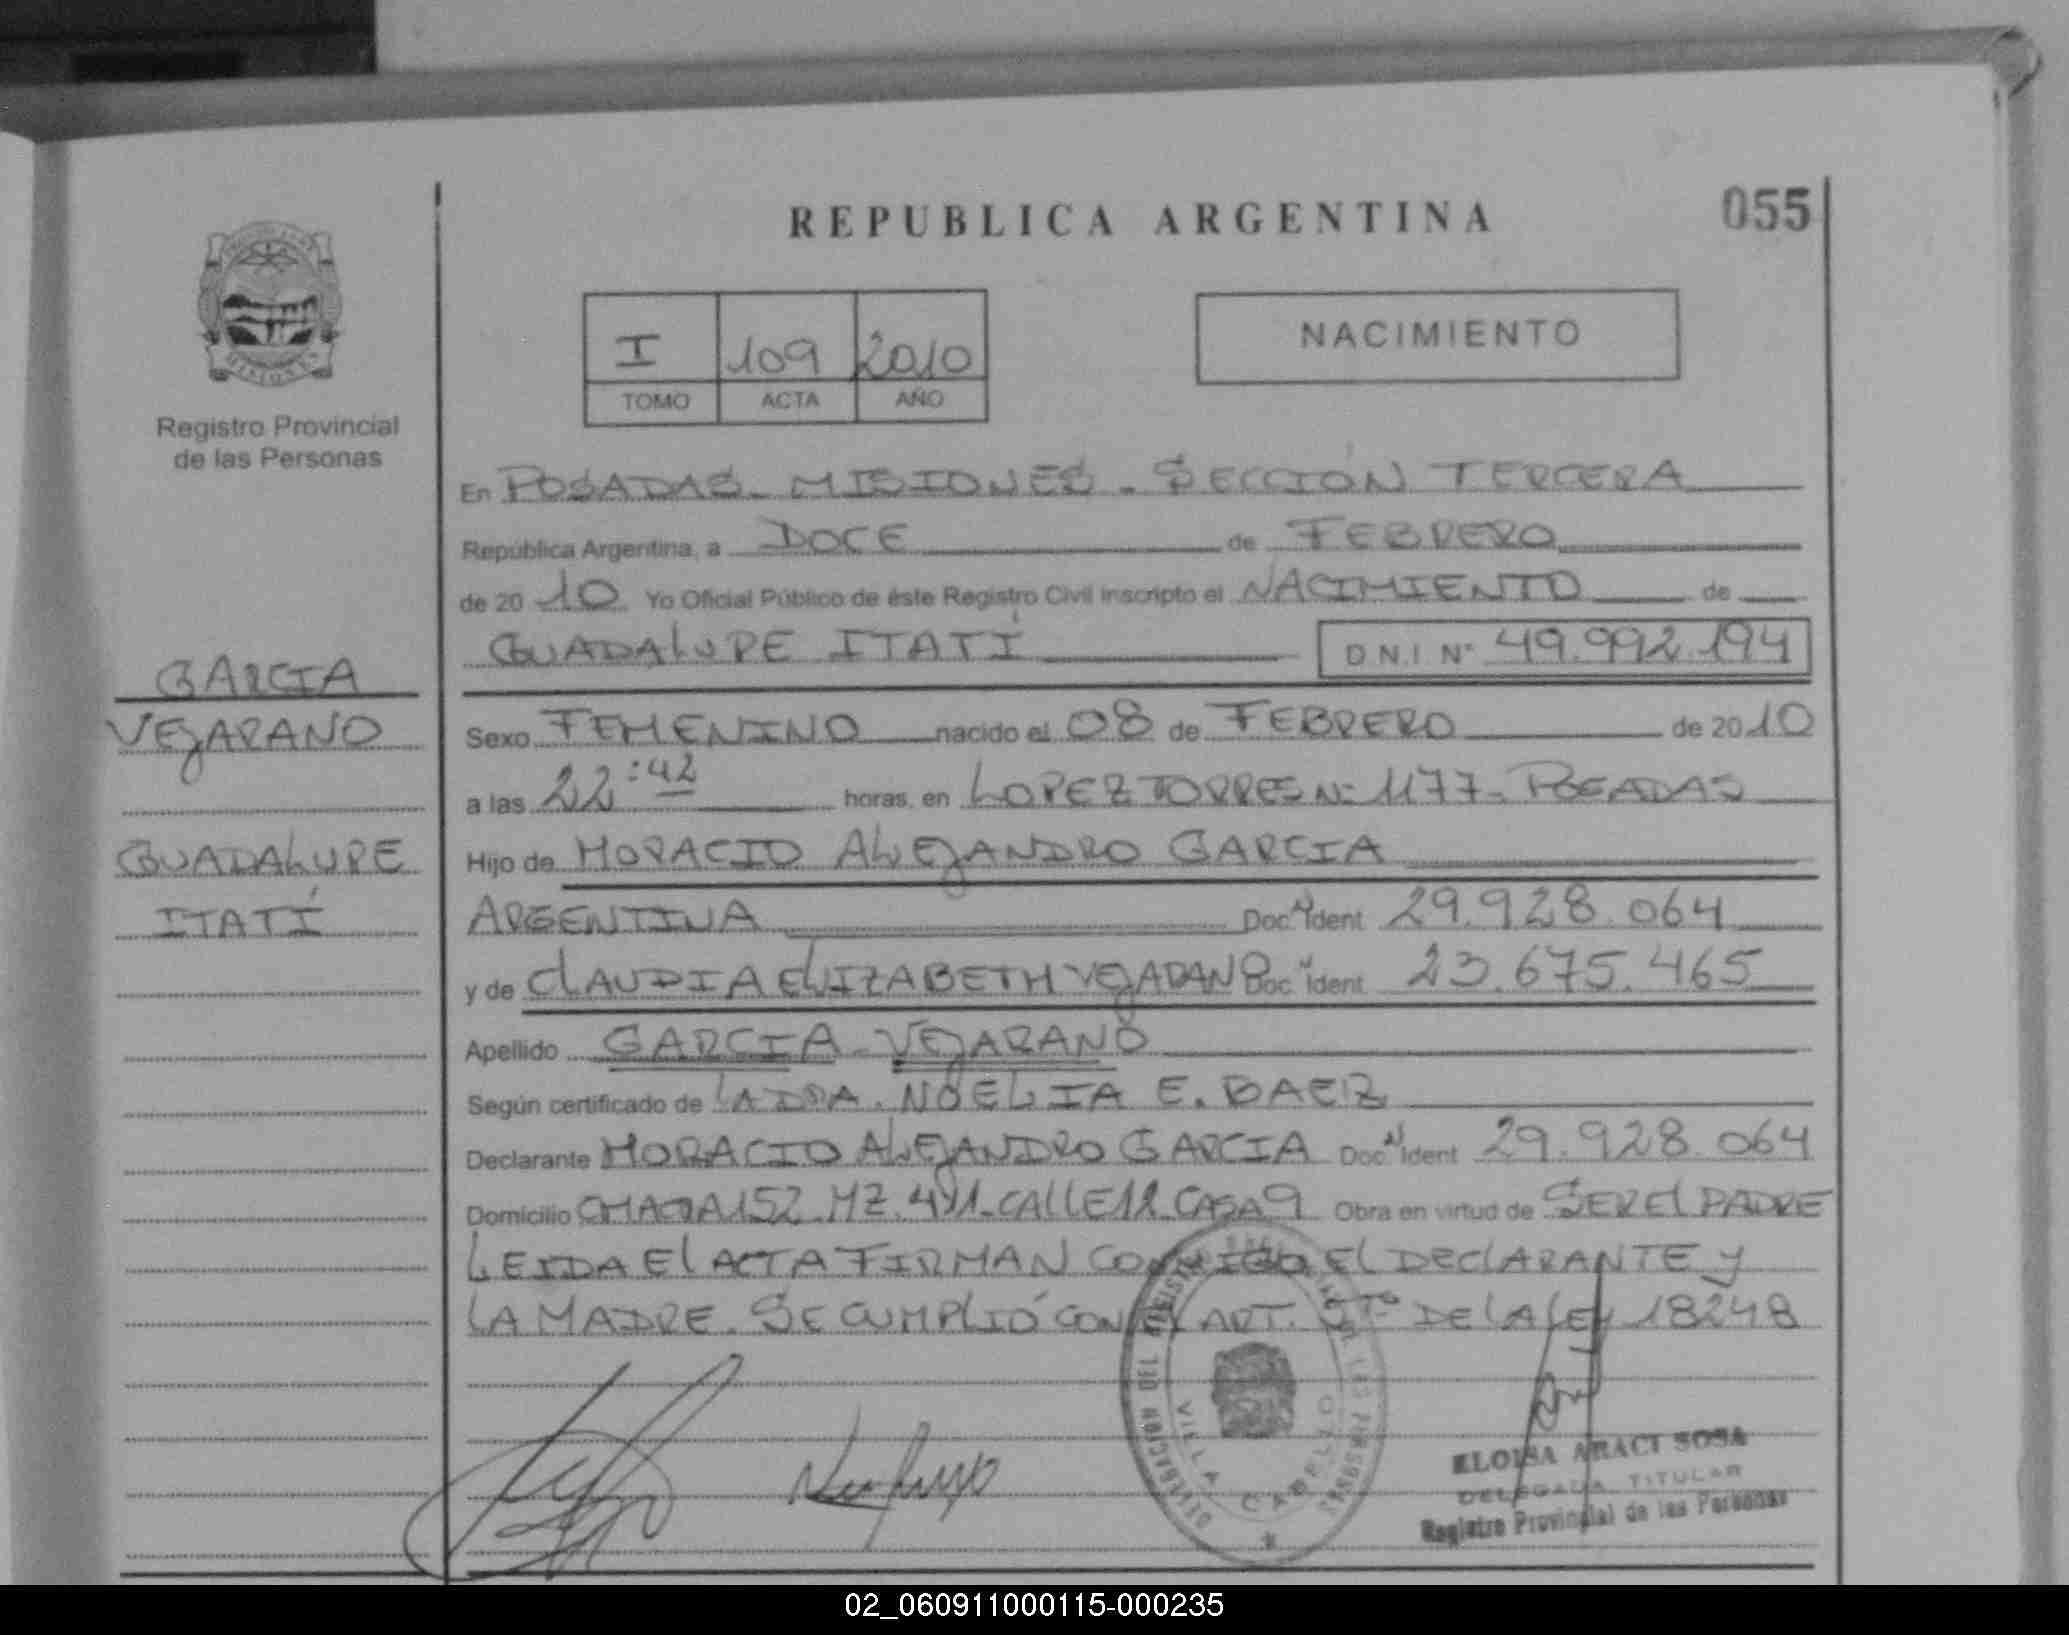 REPUBLICA ARGENTINA
055
I 109 2010
TOMO ACTA AÑO
NACIMIENTO
Registro Provincial
de las Personas
En POSADAS - MISIONES - SECCIÓN TERCERA
República Argentina, a DOCE de FEBRERO
de 2010 Yo Oficial Público de éste Registro Civil inscripto el NACIMIENTO de
GUADALUPE ITATÍ D.N.I. Nº 49.992.194
GARCIA
VEJARANO
GUADALUPE
ITATÍ
Sexo FEMENINO nacido el 08 de FEBRERO de 2010
a las 22:42 horas, en LOPEZ TORRES Nº 1177 - POSADAS
Hijo de HORACIO ALEJANDRO GARCIA
ARGENTINA Doc. Ident. 29.928.064
y de CLAUDIA ELIZABETH VEJARANO Doc. Ident. 23.675.465
Apellido GARCIA - VEJARANO
Según certificado de LA DRA. NOELIA E. BAEZ
Declarante HORACIO ALEJANDRO GARCIA Doc. Ident 29.928.064
Domicilio CHACRA 152. MZ. 491. CALLE 12 CASA 9 Obra en virtud de SER EL PADRE
LEIDA EL ACTA FIRMAN CONMIGO EL DECLARANTE Y
LA MADRE. SE CUMPLIÓ CON EL ART. DE LA LEY 18248
VILLA CABELLO
ELOISA ARACI SOSA
DELEGADA TITULAR
Registro Provincial de las Personas
02_060911000115-000235